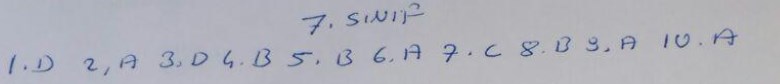 7. SINIF
1.D 2,A 3.D 4.B 5. B 6.A 7.C 8.B 9.A 10.A